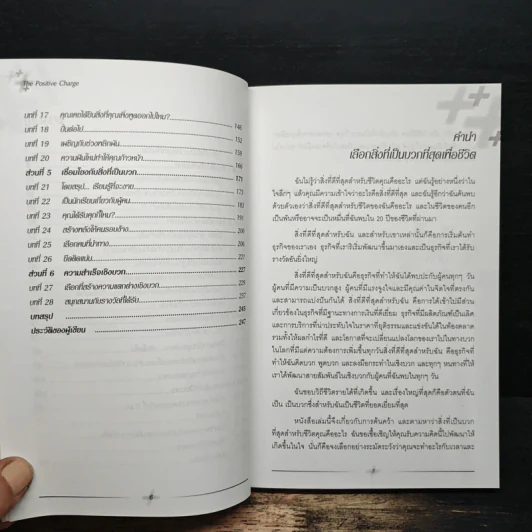 The Positive Charge
บทที่ 17 คุณเคยได้ยินสิ่งที่คุณเพิ่งพูดออกไปไหม? 148
บทที่ 18 ปีนต่อไป 152
บทที่ 19 เผชิญกับช่วงพลิกผัน 158
บทที่ 20 ความฝันใหม่ทำให้คุณก้าวหน้า 165
ส่วนที่ 5 เชื่อมโยงกับสิ่งที่เป็นบวก 171
บทที่ 21 โดยสรุป... เรียนรู้ที่จะจาก
บทที่ 22 เป็นนักเรียนเกี่ยวกับผู้คน
บทที่ 23 คุณได้รับคุกกี้ไหม? 191
บทที่ 24 สร้างพลังให้คนรอบข้าง
บทที่ 25 เลือกคนที่นำทาง
บทที่ 26 ยึดติดแน่น
ส่วนที่ 6 ความสำเร็จเชิงบวก 227
บทที่ 27 เลือกที่สร้างความแตกต่างเชิงบวก
บทที่ 28 สนุกสนานกับรางวัลที่ได้รับ
บทสรุป 243
ประวัติของผู้เขียน 247
คำนำ
เลือกสิ่งที่เป็นบวกที่สุดเพื่อชีวิต
ฉันไม่รู้ว่าสิ่งที่ดีที่สุดสำหรับชีวิตคุณคืออะไร แต่ฉันรู้อย่างหนึ่งว่าใน
ใจลึกๆ แล้วคุณมีความเข้าใจว่าอะไรคือสิ่งที่ดีที่สุด และฉันรู้อีกว่าฉันค้นพบ
ด้วยตัวเองว่าสิ่งที่ดีที่สุดสำหรับชีวิตของฉันคืออะไร และในชีวิตของคนอีก
เป็นพันหรืออาจจะเป็นหมื่นที่ฉันพบใน 20 ปีของชีวิตที่ผ่านมา
สิ่งที่ดีที่สุดสำหรับฉัน และสำหรับเขาเหล่านั้นก็คือการเริ่มต้นทำ
ธุรกิจของเราเอง ธุรกิจที่เราริเริ่มพัฒนาขึ้นมาเองและเป็นธุรกิจที่เราได้รับ
รางวัลอันยิ่งใหญ่
สิ่งที่ดีที่สุดสำหรับฉันคือธุรกิจที่ทำให้ฉันได้พบปะกับผู้คนทุกๆ วัน
ผู้คนที่มีความเป็นบวกสูง ผู้คนที่มีแรงจูงใจและมีคุณค่าในจิตใจที่ตรงกัน
และสามารถแบ่งปันกันได้ สิ่งที่ดีที่สุดสำหรับฉัน คือการได้เข้าไปมีส่วน
เกี่ยวข้องในธุรกิจที่มีฐานะทางการเงินที่ดีเยี่ยม ธุรกิจที่มีผลิตภัณฑ์เป็นเลิศ
และการบริการที่น่าประทับใจในราคาที่ยุติธรรมและแข่งขันได้ในท้องตลาด
รวมทั้งให้ผลกำไรที่ดี และโอกาสที่จะเปลี่ยนแปลงโลกของเราไปในทางบวก
ในโลกที่มีแต่ความต้องการเพิ่มขึ้นทุกวันสิ่งที่ดีที่สุดสำหรับฉัน คือธุรกิจที่
ทำให้ฉันคิดบวก พูดบวก และลงมือกระทำในเชิงบวก และทุกๆ หนทางที่ให้
เราได้พัฒนาสายสัมพันธ์ในเชิงบวกกับผู้คนที่ฉันพบในทุกๆ วัน
ฉันชอบวิถีชีวิตรายได้ที่เกิดขึ้น และเรื่องใหญ่ที่สุดก็คือตัวตนที่ฉัน
เป็น เป็นบวกซึ่งสำหรับฉันเป็นชีวิตที่ยอดเยี่ยมที่สุด
หนังสือเล่มนี้จึงเกี่ยวกับการค้นคว้า และตามหาว่าสิ่งที่เป็นบวก
ที่สุดสำหรับชีวิตคุณคืออะไร ฉันขอเชื้อเชิญให้คุณรับความคิดนี้ไปพัฒนาให้
เกิดขึ้นในใจ นั่นก็คือจงเลือกอย่างระมัดระวังว่าคุณจะทำอะไรกับเวลาและ